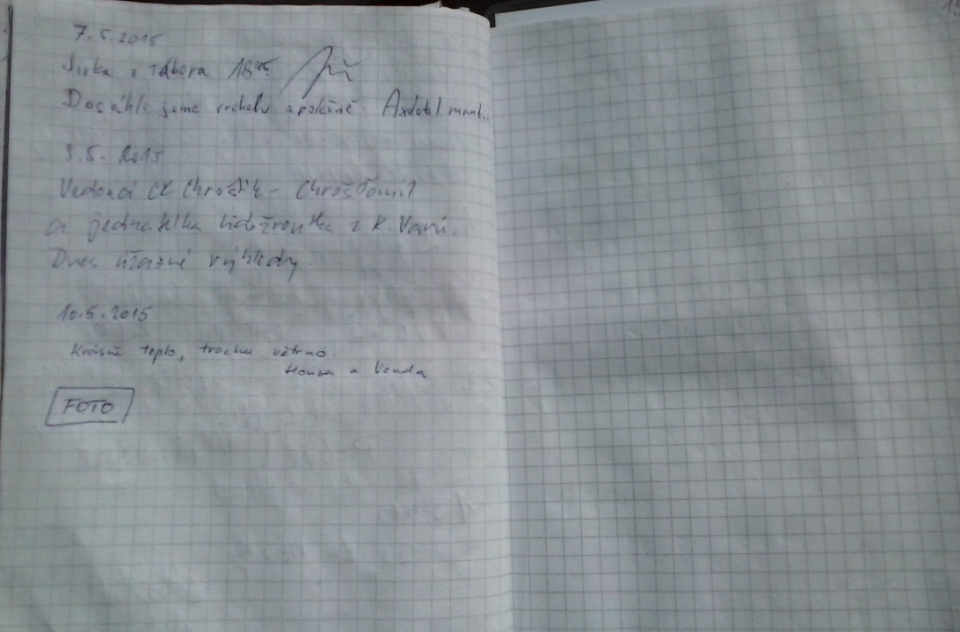 7.5.2015
Jirka z Tábora 18⁴⁵
Dosáhli jsme vrcholu společně.
8.5. 2015
Vedoucí CK Chrošťík -
a jednatelka z K. Varů.
Dnes úžasné výhledy.
10.5.2015
Krásné teplo, trochu větrno.
Honza a Venda
FOTO